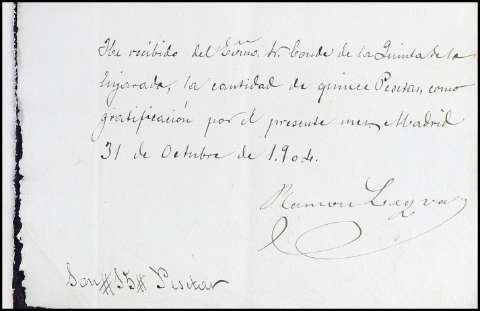 He recibido del Eccmo. Sr. Conde de la Quinta de la
Enjarada, la cantidad de quince Pesetas, como
gratificación por el presente mes, Madrid
31 de Octubre de 1904.
Ramon Leyva
Son # 15 # Pesetas